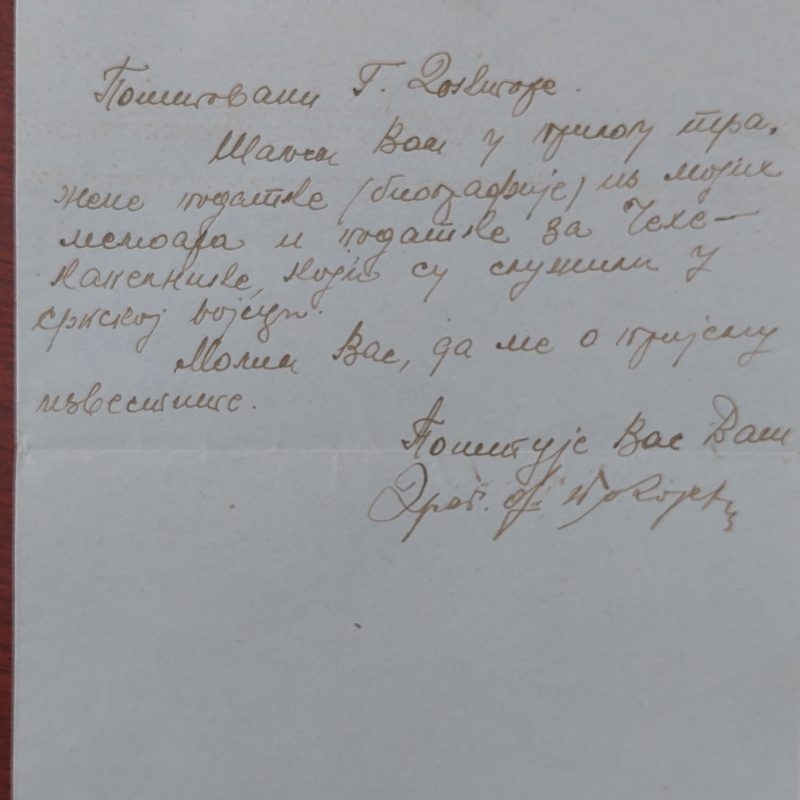 Поштовани Г. Докторе.
Шаљем Вам у прилогу тра-
жене податке (биографије) из мојих
мемоара и податке за Челе-
который су служили у
српској војсци.
Молим Вас, да ме о пријему
известите.
Поштује Вас Ваш
Драг.